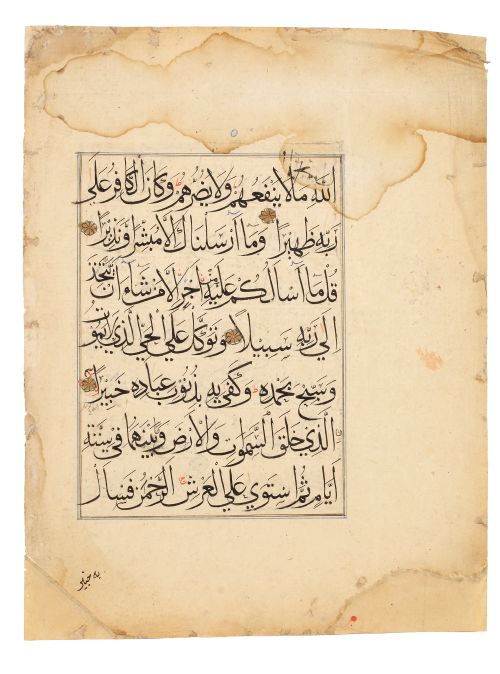 الله ما لا ينفعهم ولا يضرهم وكان الكافر على
ربه ظهيرا وما ارسلناك الا مبشرا ونذيرا
قل ما اسألكم عليه من اجر الا من شاء ان يتخذ
الي ربه سبيلا وتوكل علي الحي الذي لا يموت
وسبح بحمده وكفي به بذنوب عباده خبيرا
الذي خلق السموات والارض وما بينهما في ستة
ايام ثم استوي علي العرش الرحمن فسأل
به خبيرا